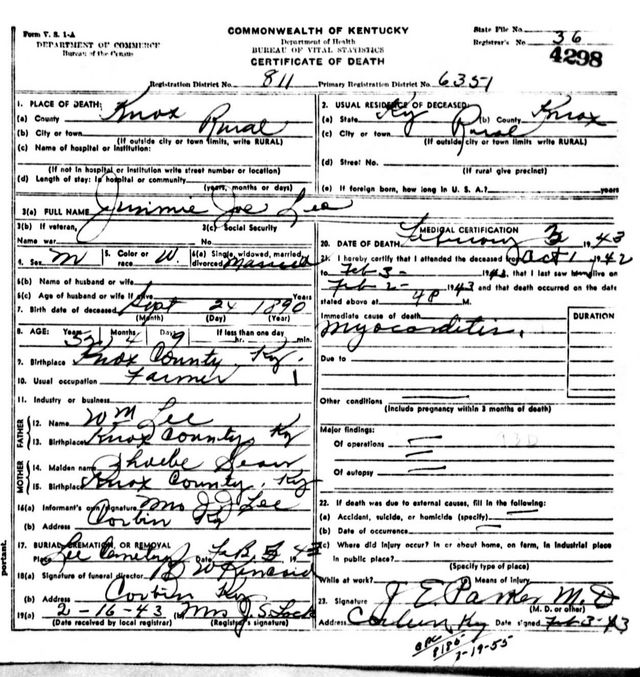 Form V. S. 1-A
DEPARTMENT OF COMMERCE
Bureau of the Census
COMMONWEALTH OF KENTUCKY
Department of Health
BUREAU OF VITAL STATISTICS
CERTIFICATE OF DEATH
State File No.
Registrar's No. 36
4298
Registration District No. 811 Primary Registration District No. 6351
1. PLACE OF DEATH:
(a) County Knox
(b) City or town Rural
(If outside city or town limits, write RURAL)
(c) Name of hospital or institution:
(If not in hospital or institution write street number or location)
(d) Length of stay: In hospital or community
(years, months or days)
2. USUAL RESIDENCE OF DECEASED:
(a) State Ky (b) County Knox
(c) City or town Rural
(If outside city or town limits write RURAL)
(d) Street No.
(If rural give precinct)
(e) If foreign born, how long in U. S. A.? years
3(a) FULL NAME Jimmie Joe Lee
3(b) If veteran, Name war
3(c) Social Security No.
4. Sex M 5. Color or race W. 6(a) Single, widowed, married, divorced Married
6(b) Name of husband or wife
6(c) Age of husband or wife if alive Years
7. Birth date of deceased Sept 24 1890
(Month) (Day) (Year)
8. AGE: Years 52 Months 4 Days 9 If less than one day hr. min.
9. Birthplace Knox County, Ky.
10. Usual occupation Farmer
11. Industry or business
FATHER
12. Name Wm Lee
13. Birthplace Knox County, Ky
MOTHER
14. Maiden name Phoebe
15. Birthplace Knox County, Ky
16(a) Informant's own signature Mrs J J Lee
(b) Address Corbin Ky
17. BURIAL, CREMATION, OR REMOVAL
Place Lee Cemetery Date Feb 5 1943
18(a) Signature of funeral director
(b) Address Corbin Ky
19(a) 2-16-43 (b) Mrs J. S. Lock
(Date received by local registrar) (Registrar's signature)
MEDICAL CERTIFICATION
20. DATE OF DEATH February 3 1943
21. I hereby certify that I attended the deceased from Oct 1 1942
to Feb 3- 1943, that I last saw him alive on
Feb 2- 1943 and that death occurred on the date
stated above at M.
Immediate cause of death
DURATION
Myocarditis.
Due to
Other conditions
(Include pregnancy within 3 months of death)
Major findings:
Of operations
Of autopsy
22. If death was due to external causes, fill in the following:
(a) Accident, suicide, or homicide (specify)
(b) Date of occurrence
(c) Where did injury occur? In or about home, on farm, in industrial place
in public place?
(Specify type of place)
While at work? (e) Means of injury
23. Signature J E Parker M.D
(M. D. or other)
Address Corbin Ky Date signed Feb-3-43
8186
2-19-55
portant.